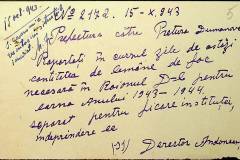 15 oct. 943
Nº 2172. 15-X.943
5
Prefectura către Pretura Dumanova
Raportați în cursul zilei de astăzi
cantitatea de lemne de foc
necesară în Raionul D-le pentru
iarna Anului 1943-1944.
separat pentru ficare instituție,
întreprindere ec
Director